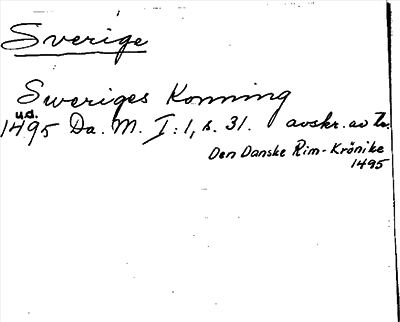 Sverige
Sweriges Konning
u.d.
1495 Da. M. I:1, s. 31. avskr. av
Den Danske Rim-Krönike
1495